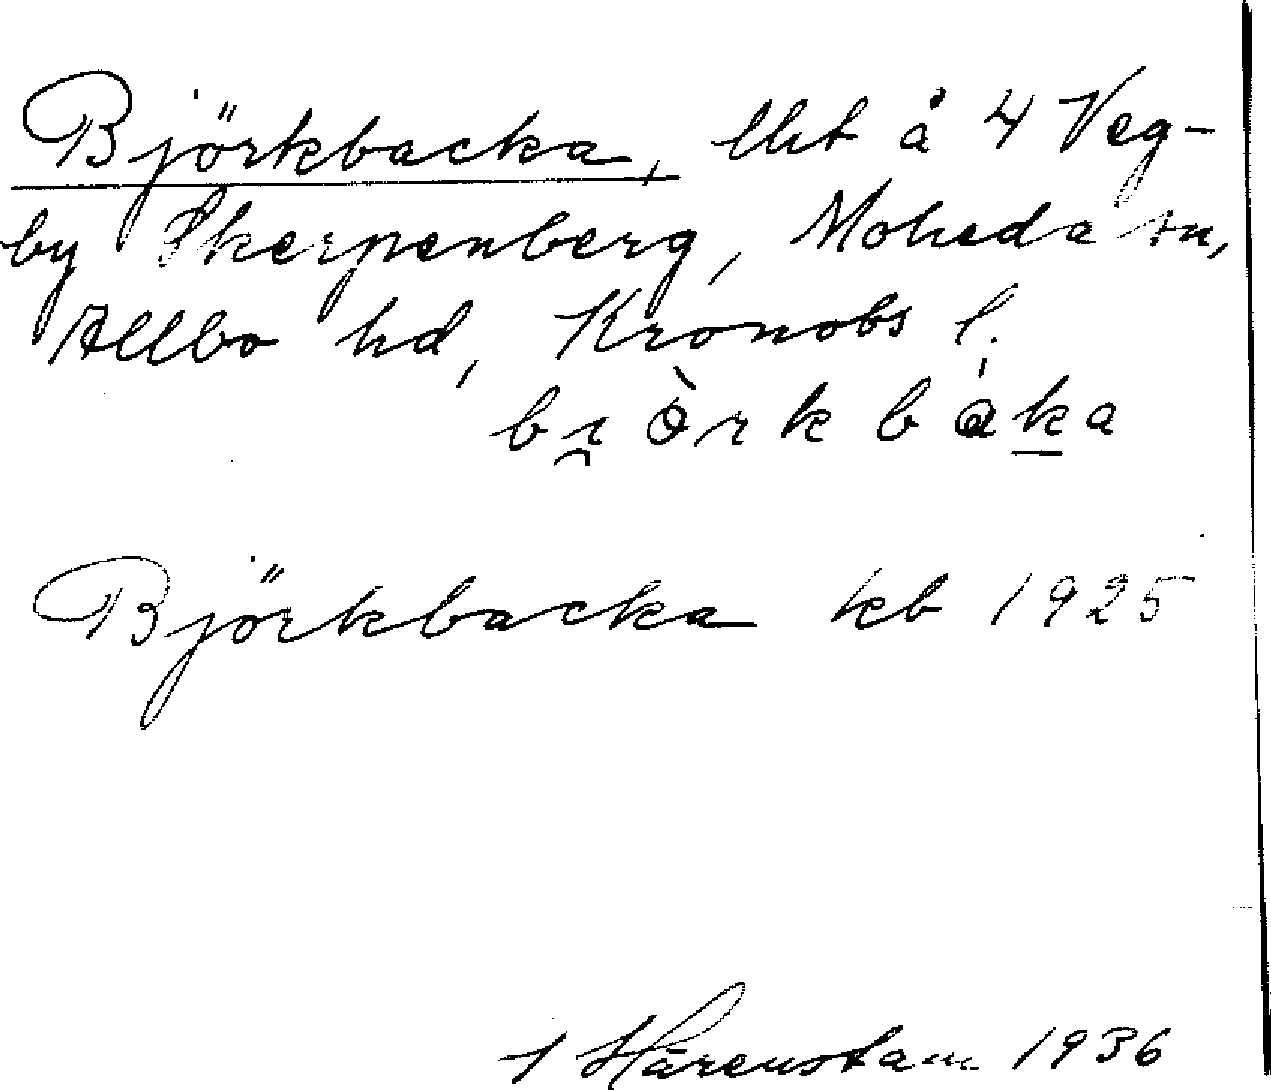 Björkbacka, lht å 4 Veg-
by Skerpenberg, Moheda sn,
Allbo hd, Kronobs l.
bi̯òrkbàka
Björkbacka kb 1925
Härenstam 1936